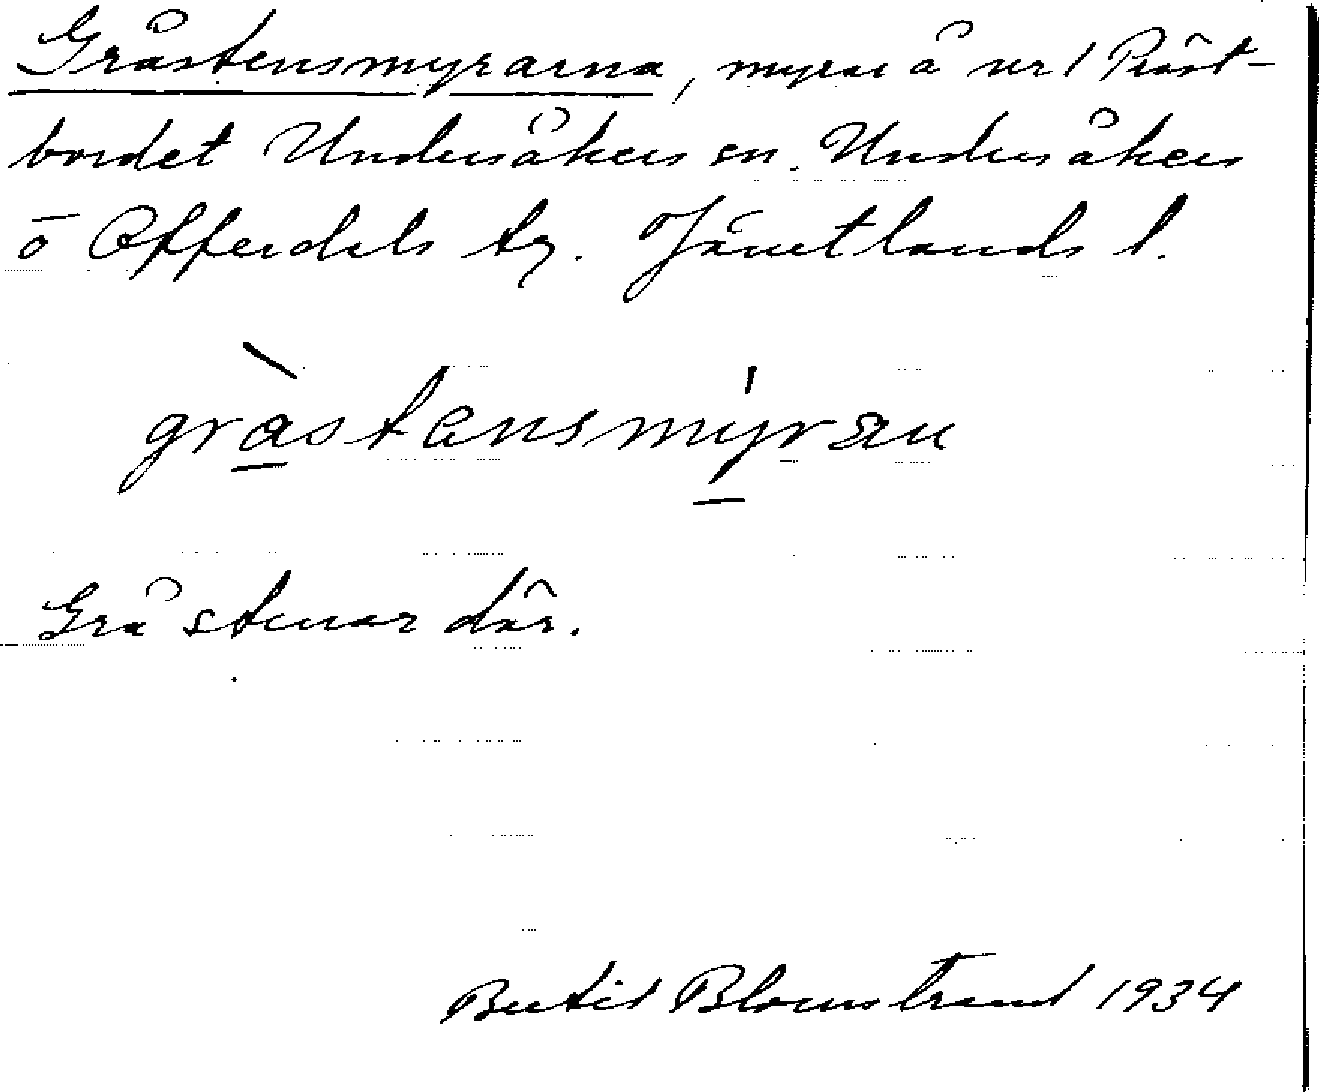 Gråstensmyrarna, myrar å nr 1 Präst-
bordet Undersåkers sn. Undersåkers
o Offerdals tg. Jämtlands l.
gràstensmýræn
Grå stenar där.
Bertil Blomstrand 1934